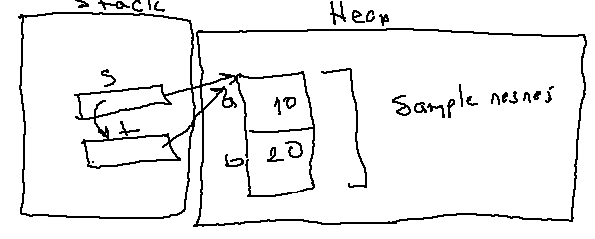 Stack
Heap
s
a 10
t
b 20
Sample nesnesi